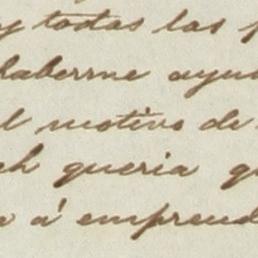 y todas las
haberme ayu
l motivo de
ch queria q
a á emprend